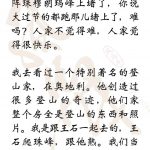 阵珠穆朗玛峰上绪了，你说
大过节的都跑那儿绪了，难
吗？人家不觉得难，人家觉
得很快乐。
我去看过一个特别著名的登
山家，在奥地利。他创造过
很多登山的奇迹，他们家
整个房全是登山的东西和照
片。我是跟王石一起去的，王
石爬珠峰，跟他熟。我们当